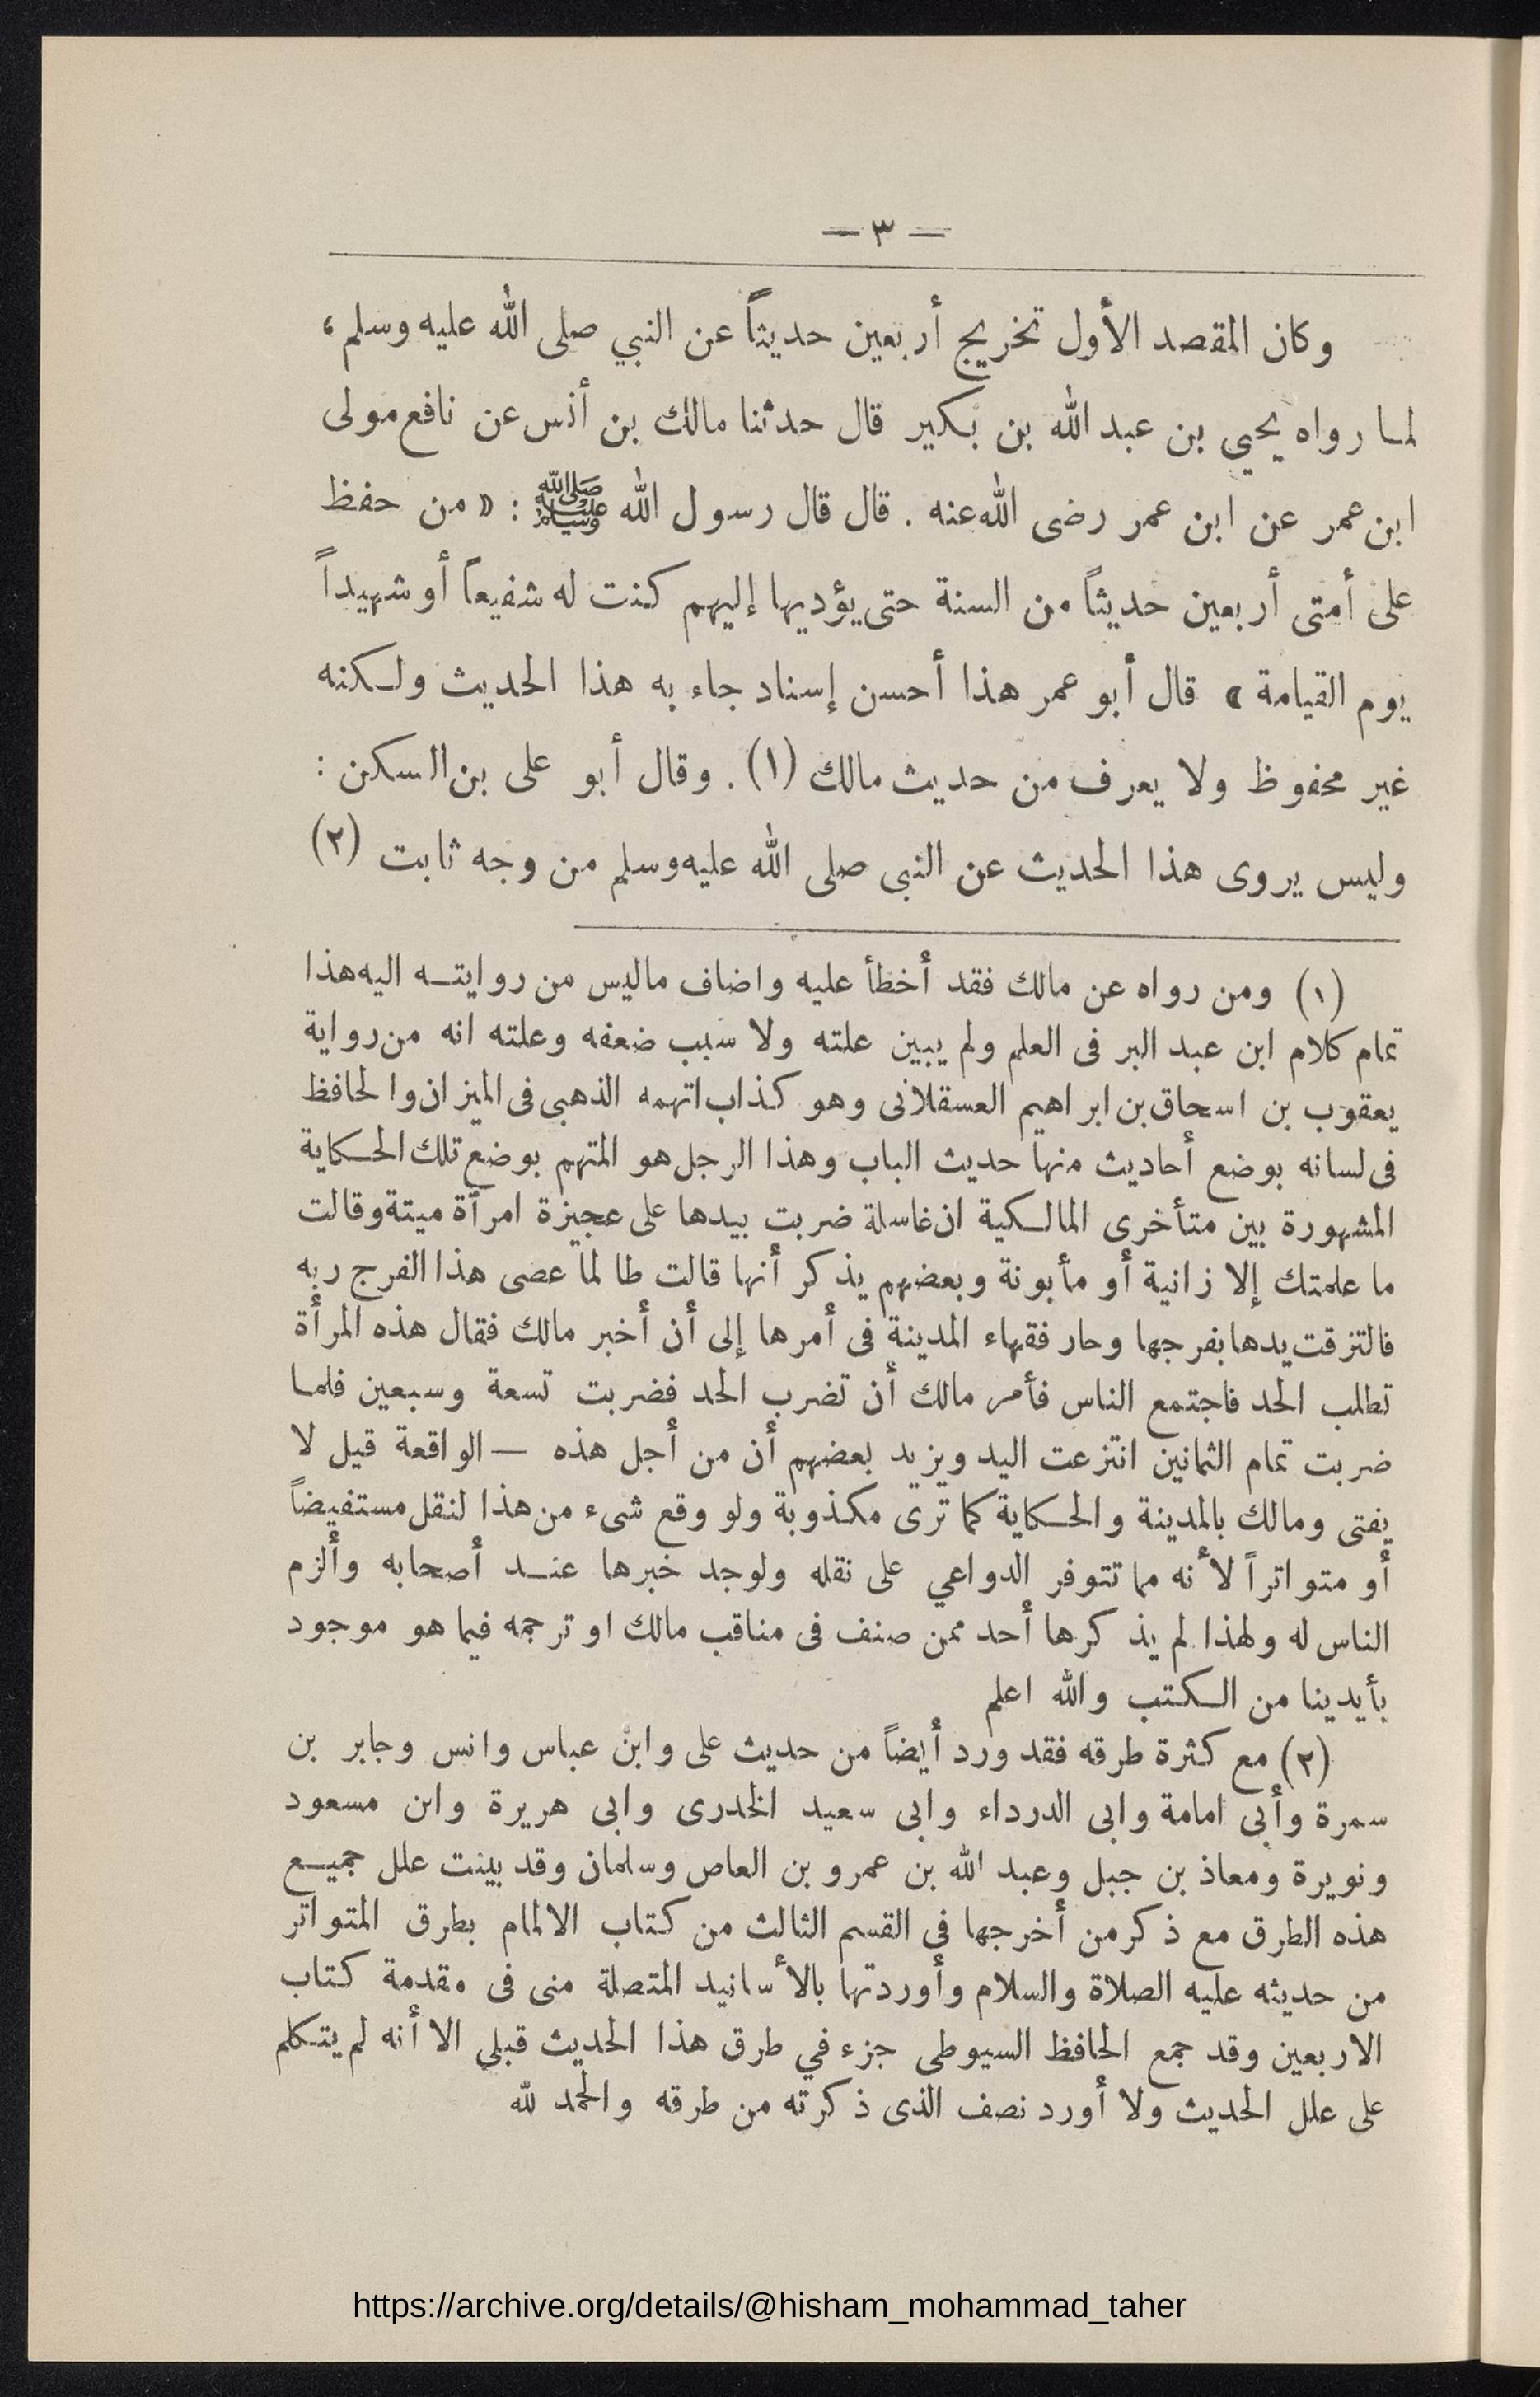 — ٣ —
وكان المقصد الأول تخريج أربعين حديثاً عن النبي صلى الله عليه وسلم،
لما رواه يحيي بن عبد الله بن بكير قال حدثنا مالك بن أنس عن نافع مولى
ابن عمر عن ابن عمر رضى الله عنه . قال قال رسول الله ﷺ : «من حفظ
على أمتى أربعين حديثاً من السنة حتى يؤديها إليهم كنت له شفيعاً أو شهيداً
يوم القيامة» قال أبو عمر هذا أحسن إسناد جاء به هذا الحديث ولكنه
غير محفوظ ولا يعرف من حديث مالك (١) . وقال أبو على بن السكن :
وليس يروى هذا الحديث عن النبى صلى الله عليه وسلم من وجه ثابت (٢)
(١) ومن رواه عن مالك فقد أخطأ عليه واضاف ماليس من روايته اليه هذا
تمام كلام ابن عبد البر فى العلم ولم يبين علته ولا سبب ضعفه وعلته انه من رواية
يعقوب بن اسحاق بن ابراهيم العسقلانى وهو كذاب اتهمه الذهبى فى الميزان والحافظ
فى لسانه بوضع أحاديث منها حديث الباب وهذا الرجل هو المتهم بوضع تلك الحكاية
المشهورة بين متأخرى المالكية ان غاسلة ضربت بيدها على عجيزة امرآة ميتة وقالت
ما علمتك إلا زانية أو مأبونة وبعضهم يذكر أنها قالت طالما عصى هذا الفرج ربه
فالتزقت يدها بفرجها وحار فقهاء المدينة فى أمرها إلى أن أخبر مالك فقال هذه المرأة
تطلب الحد فاجتمع الناس فأمر مالك أن تضرب الحد فضربت تسعة وسبعين فلما
ضربت تمام الثمانين انتزعت اليد ويزيد بعضهم أن من أجل هذه — الواقعة قيل لا
يفتى ومالك بالمدينة والحكاية كما ترى مكذوبة ولو وقع شىء من هذا لنقل مستفيضاً
أو متواتراً لأنه مما تتوفر الدواعي على نقله ولوجد خبرها عند أصحابه وألزم
الناس له ولهذا لم يذكرها أحد ممن صنف فى مناقب مالك او ترجمه فيما هو موجود
بأيدينا من الكتب والله اعلم
(٢) مع كثرة طرقه فقد ورد أيضاً من حديث على وابن عباس وانس وجابر بن
سمرة وأبى امامة وابى الدرداء وابى سعيد الخدرى وابى هريرة وابن مسعود
ونويرة ومعاذ بن جبل وعبد الله بن عمرو بن العاص وسلمان وقد بينت علل جميع
هذه الطرق مع ذكر من أخرجها فى القسم الثالث من كتاب الالمام بطرق المتواتر
من حديثه عليه الصلاة والسلام وأوردتها بالأسانيد المتصلة منى فى مقدمة كتاب
الاربعين وقد جمع الحافظ السيوطى جزء في طرق هذا الحديث قبلي الا أنه لم يتكلم
على علل الحديث ولا أورد نصف الذى ذكرته من طرقه والحمد لله
https://archive.org/details/@hisham_mohammad_taher